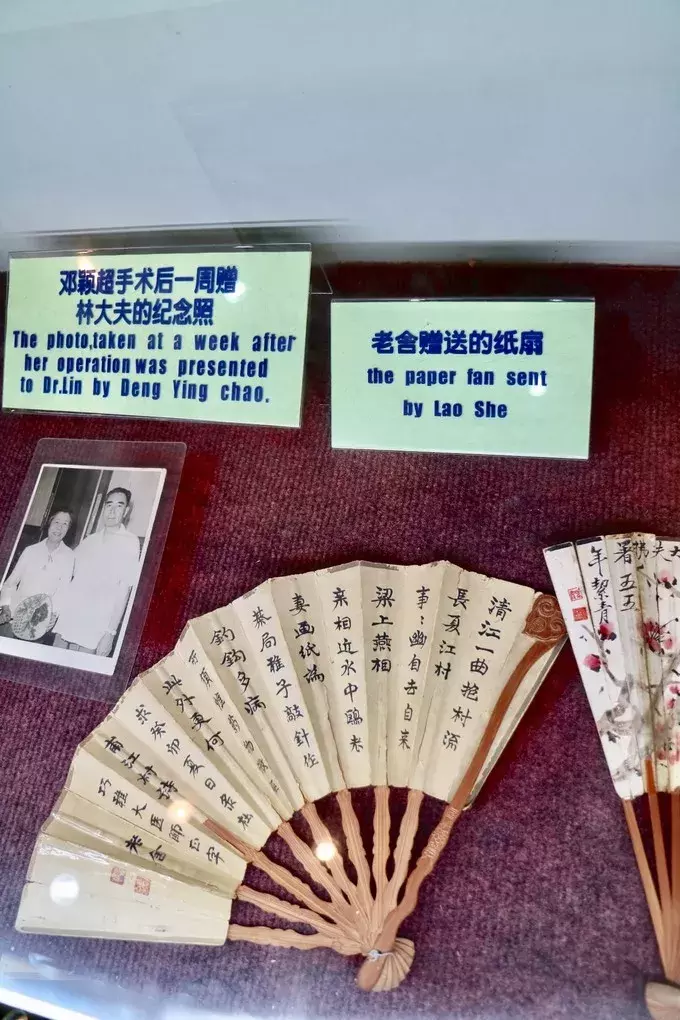 邓颖超手术后一周赠
林大夫的纪念照
The photo,taken at a week after
her operation was presented
to Dr.Lin by Deng Ying chao.
老舍赠送的纸扇
the paper fan sent
by Lao She
清江一曲抱村流
長夏江村
事〻幽自去自来
梁上燕相
親相近水中鷗老
妻画纸為
棊局稚子敲針作
釣鈎多病
所須唯药物微躯
此外更何
求癸卯夏日录杜
甫江村詩
巧稚大医師正字
老舍
大夫拂
署五五
年絜青